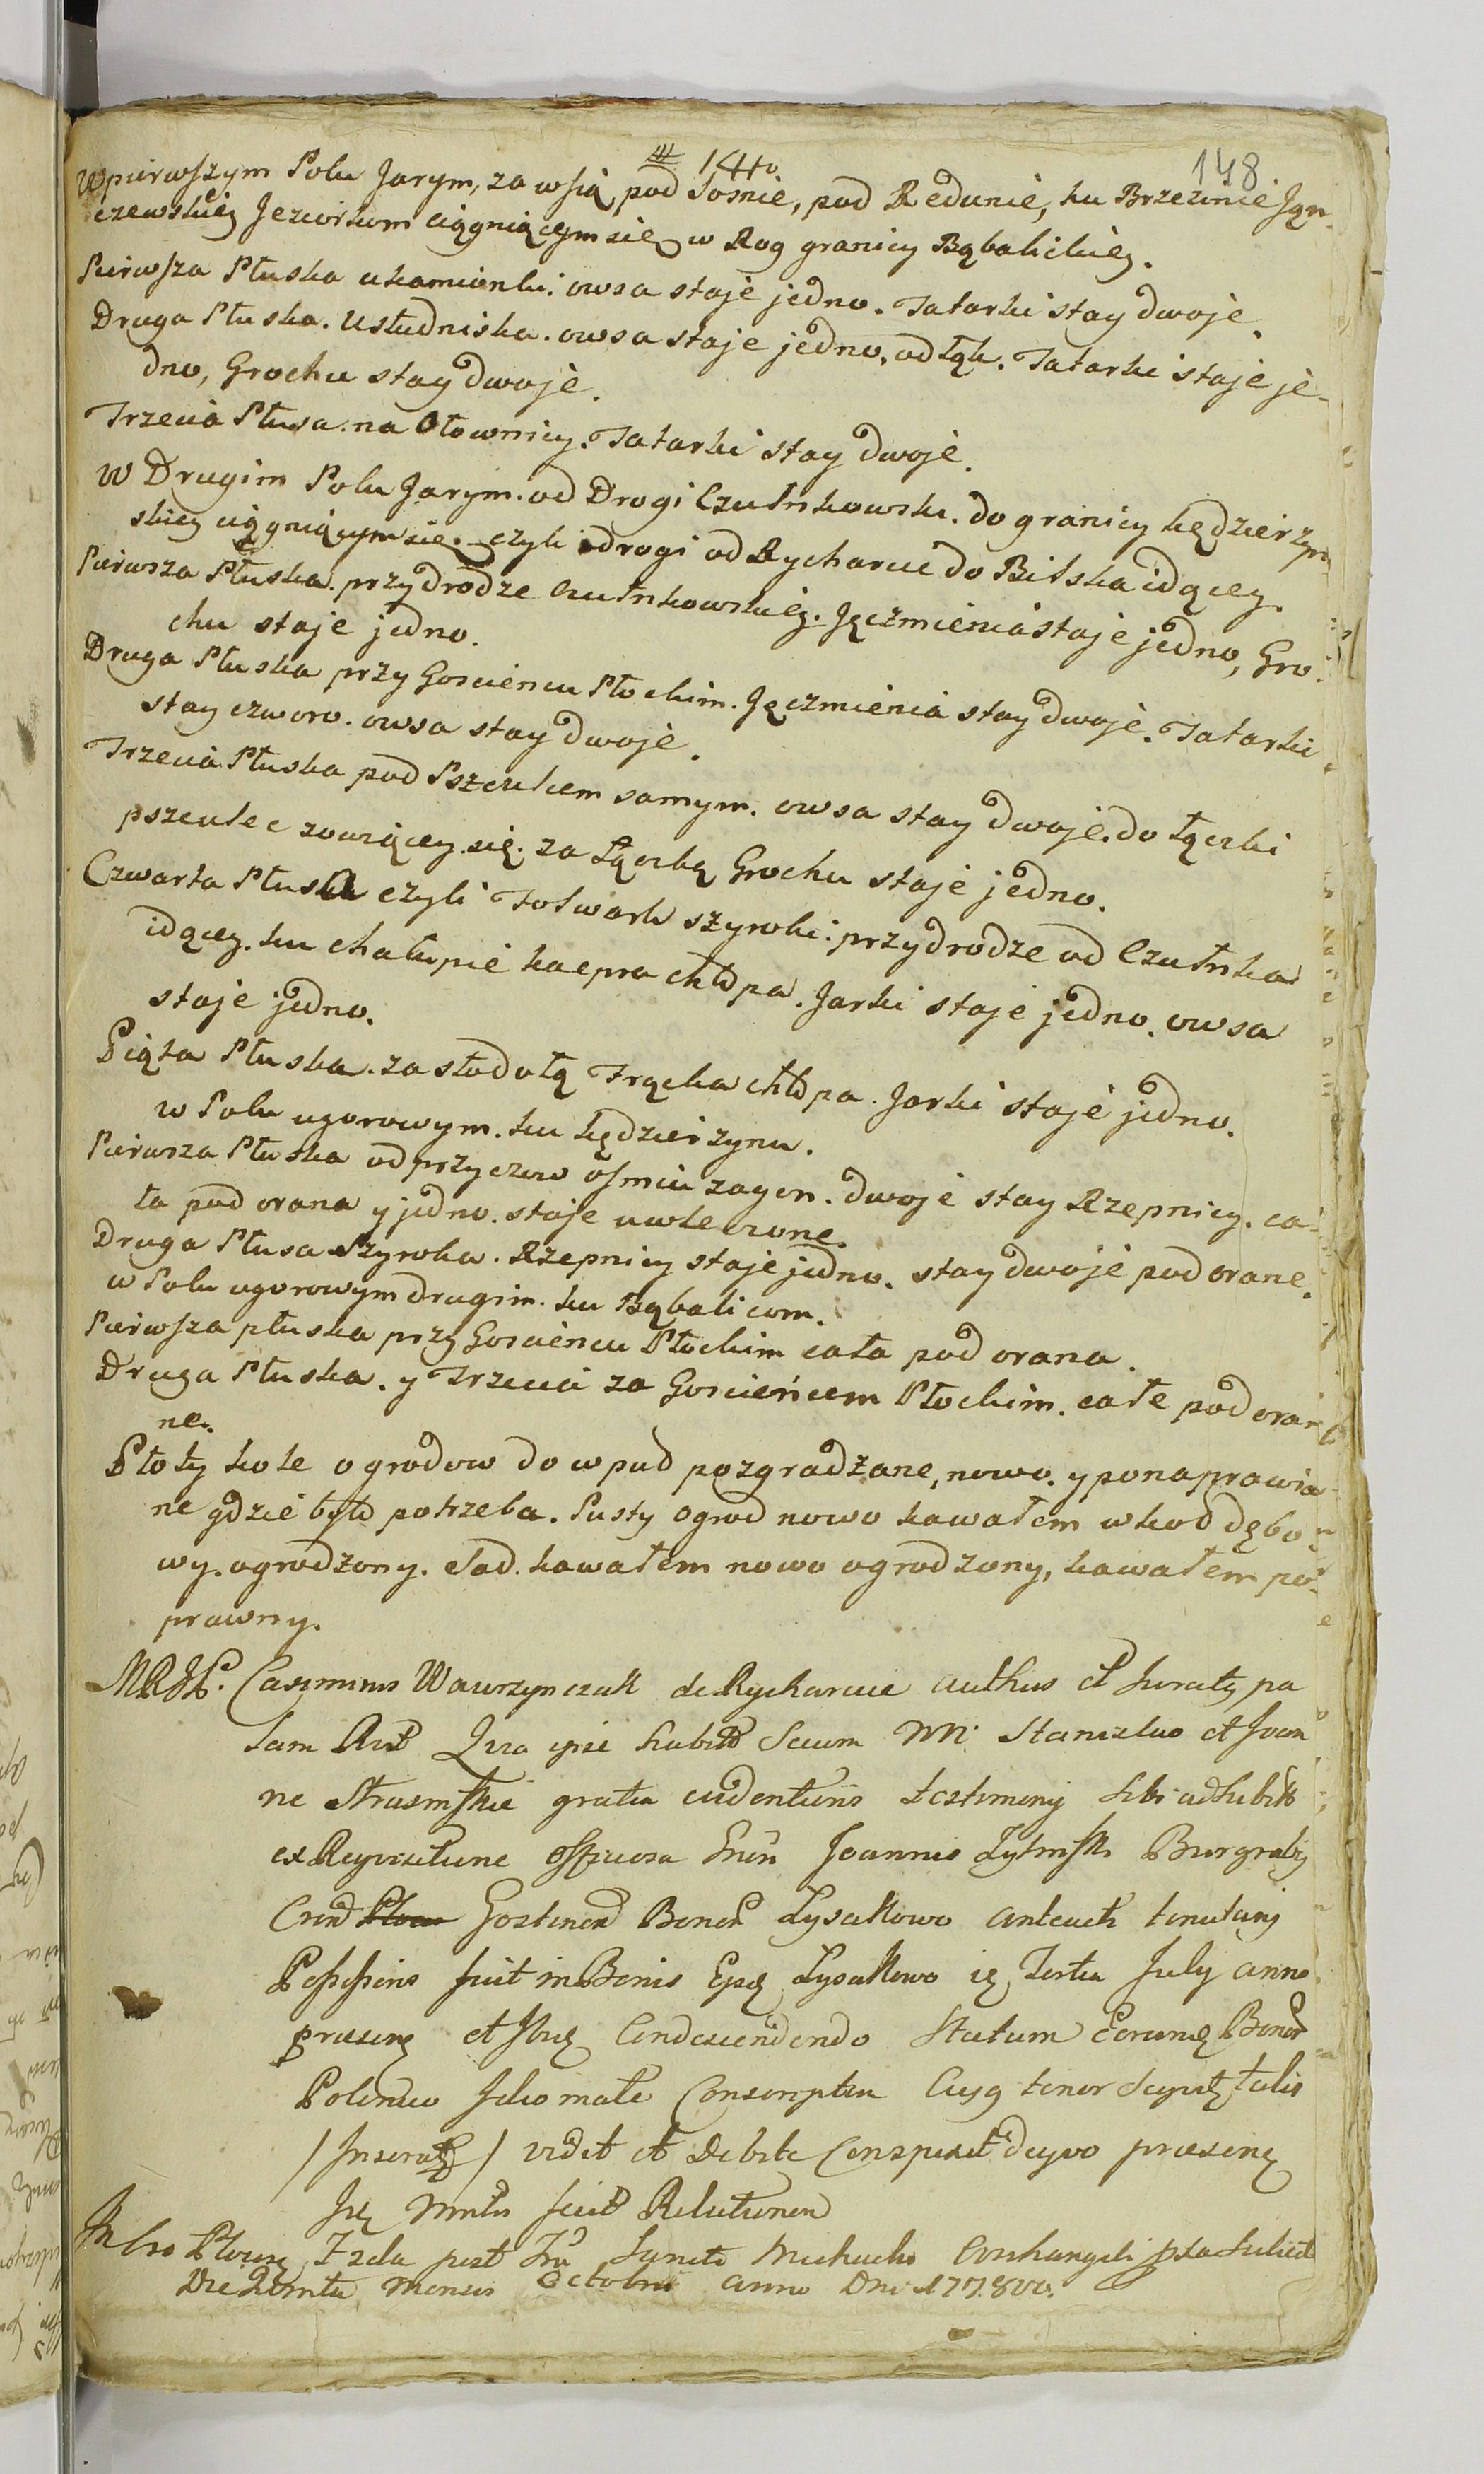 148
144
W pierwszym Polu Jarym, za wsią pod Sośnie, pod Redunie, ku Brzezinie Jgn-
czewskiey Jeziorkom ciągniącym się w Rog granicy Bąbalickiey.
Pierwsza Płuska u kamionki. owsa staje jedno. Tatarki stay dwoje.
Druga Płuska. Usłudniska. owsa staje jedno, od łąk. Tatarki staje je-
dno, Grochu stay dwoje.
Trzecia Płusa na Ołownicy. Tatarki stay dwoje.
W Drugim Polu Jarym. od Drogi Czułnkowski. do granicy Kędzierzyn
skiey ciągniącym się. czyli drogi od Rycharcic do Bilska idącey.
Pierwsza Płuska. przy drodze Czułnkowskiey. Jęczmienia staje jedno, Gro-
chu staje jedno.
Druga Płuska przy Gosciencu Płockim. Jęczmienia stay dwoje. Tatarki
stay czworo. owsa stay dwoje.
Trzecia Płuska pod Pszczulcem samym. owsa stay dwoje. do łączki
pszculec zowiącey się. za Łączką Grochu staje jedno.
Czwarta Płuska czyli Folwark szyroki. przy drodze od Czułnka
idącey. ku chałupie kacpra chłopa. Jarki staje jedno. owsa
staje jedno.
Piąta Płuska. za stodołą Frącka chłopa. Jarki staje jedno.
w Polu ugorowym. ku Kędzierzynu.
Pierwsza Płuska od przyczew ośmiu zagon. dwoje stay Rzepnicy. ca-
ła pod orana y jedno. staje uwleczone.
Druga Płusa Szyroka. Rzepnicy staje jedno. stay dwoje pod orane.
w Polu ugorowym drugim. ku Bąbalicom.
Pierwsza płuska przy Goscieńcu Płockim cała pod orana.
Druga Płuska. y Trzecia za Goscieńcem Płockim. całe pod ora-
ne.
Płoty koło ogrodow do wpud pozgradzane, nowo. y ponaprawia-
ne gdzie było potrzeba. Pusty ogrod nowo kawałem wkoł dębo-
wy. ogrodzony. Sad. kawałem nowo ogrodzony, kawałem po-
prawny.
MRJP. Casimirus Wawrzynczak de Rycharcie authus et Juratꝫ pa
lam Rect Qua ipse habitis Secum NN. Stanislao et Joan
ne Strusinskie gratia evidentioris testimony sibi adhibitis
ex Reqvisitione officiosa Joannis Zytinski Burgraby
Crend Gostinen Bonor Lysakowo antea tenutarij
Possessoris fuit in Bonis Lysakowo Tertia July anno
praesen et Condescendendo Statum Bonor
Polonico Idiomate Conscriptum Cujq tenor Seqvitꝫ talis
/ Inseratꝫ / vidit et debite Conspexit de qvo praesenꝫ
fecit Relationem
In Cro Plocen Fźela post Sancti Michaelis Archangeli
Die mensis Octobris anno Dni 177.8vo.